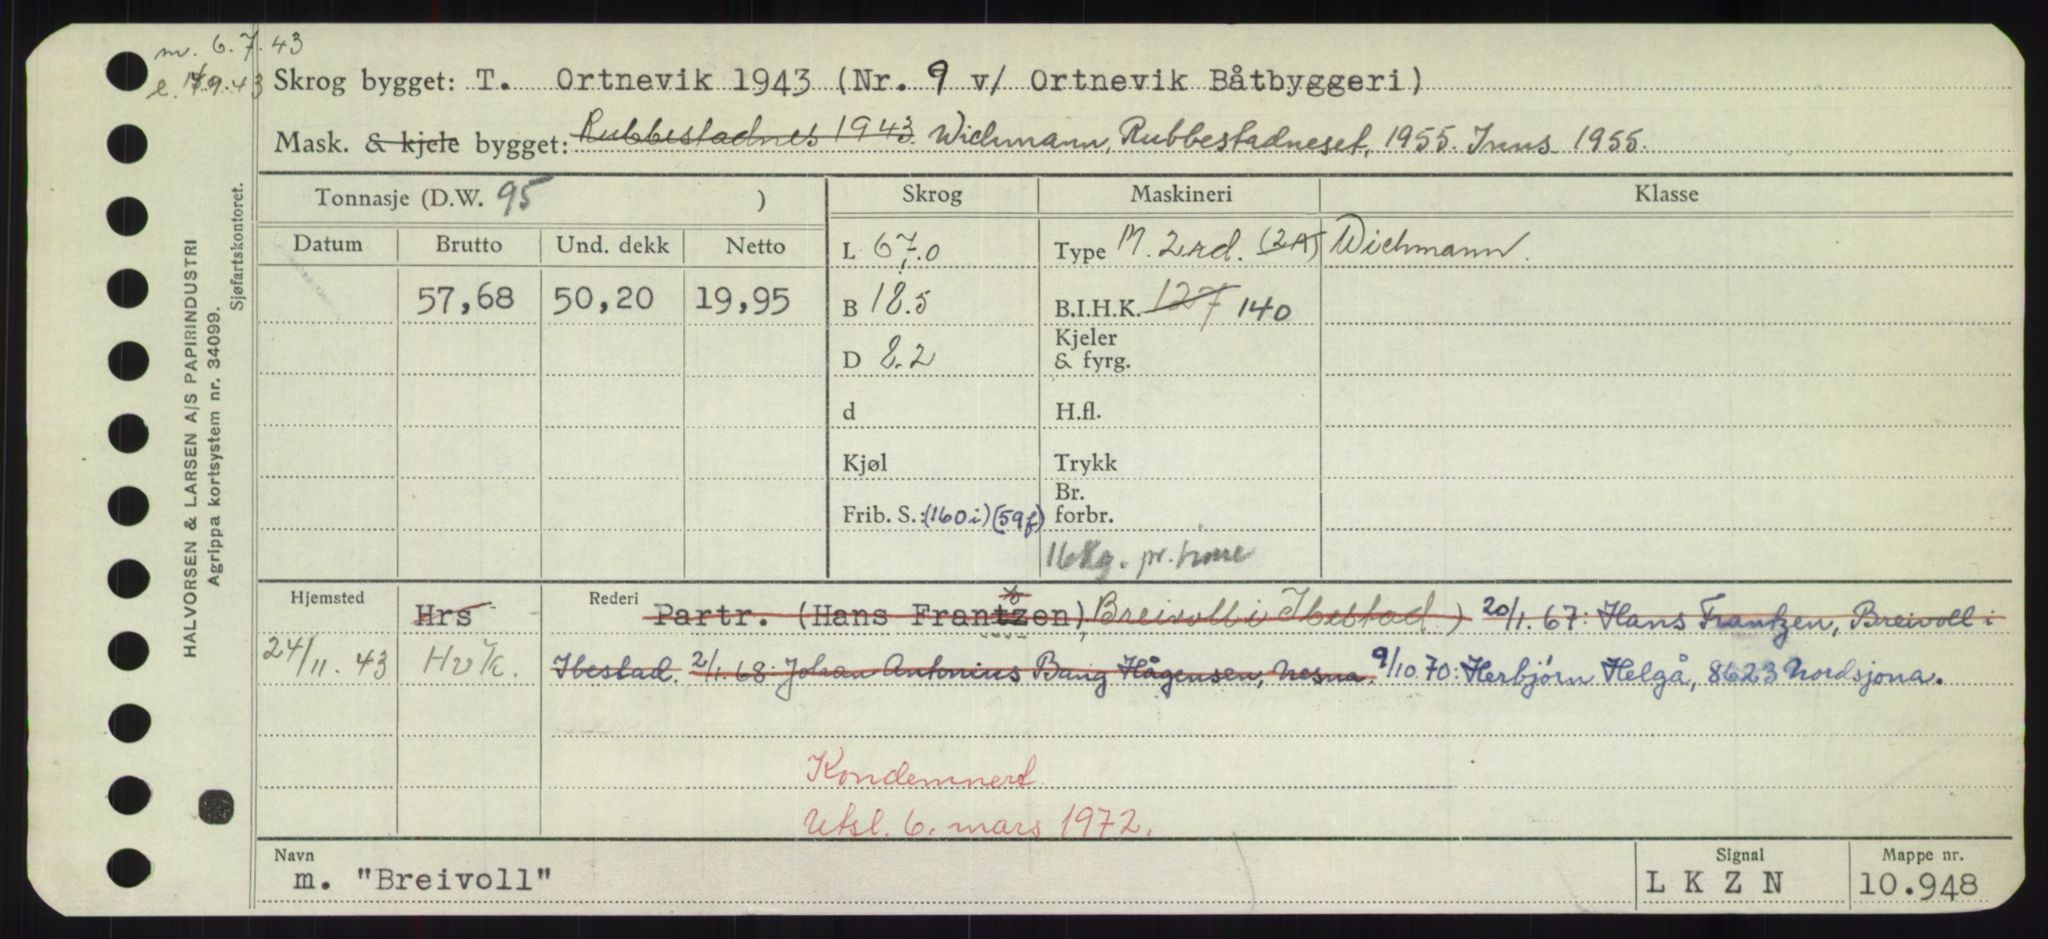 m. 6.7.43
e. 17/9.43
Skrog bygget: T. Ortnevik 1943 (Nr. 9 v/ Ortnevik Båtbyggeri)
Mask. & kjele bygget: Rubbestadnes 1943. Wichmann, Rubbestadneset, 1955. Inns. 1955.
Tonnasje (D.W. 95 )
Skrog
Maskineri
Klasse
Datum Brutto Und. dekk Netto
L 67.0
Type M. 2rd. (2A)
Wichmann.
57,68 50,20 19,95
B 18.5
B.I.H.K. 127 140
D 8.2
Kjeler
& fyrg.
d
H.fl.
Kjøl
Trykk
Frib. S.: (160i) (59f)
Br.
forbr.
16 Kg. pr. time
Hjemsted
Rederi
Hrs Partr. (Hans Frantzen) Breivoll i Ibestad) 20/1.67: Hans Frantzen, Breivoll i
24/11.43 HvK. Ibestad. 2/1.68: Johan Antonius Bang Hågensen, Nesna. 9/10.70: Herbjørn Helgå, 8623 Nordsjona.
Kondemnert.
Utsl. 6. mars 1972.
Navn
m. "Breivoll"
Signal
LKZN
Mappe nr.
10.948
HALVORSEN & LARSEN A/S PAPIRINDUSTRI
Agrippa kortsystem nr. 34099.
Sjøfartskontoret.